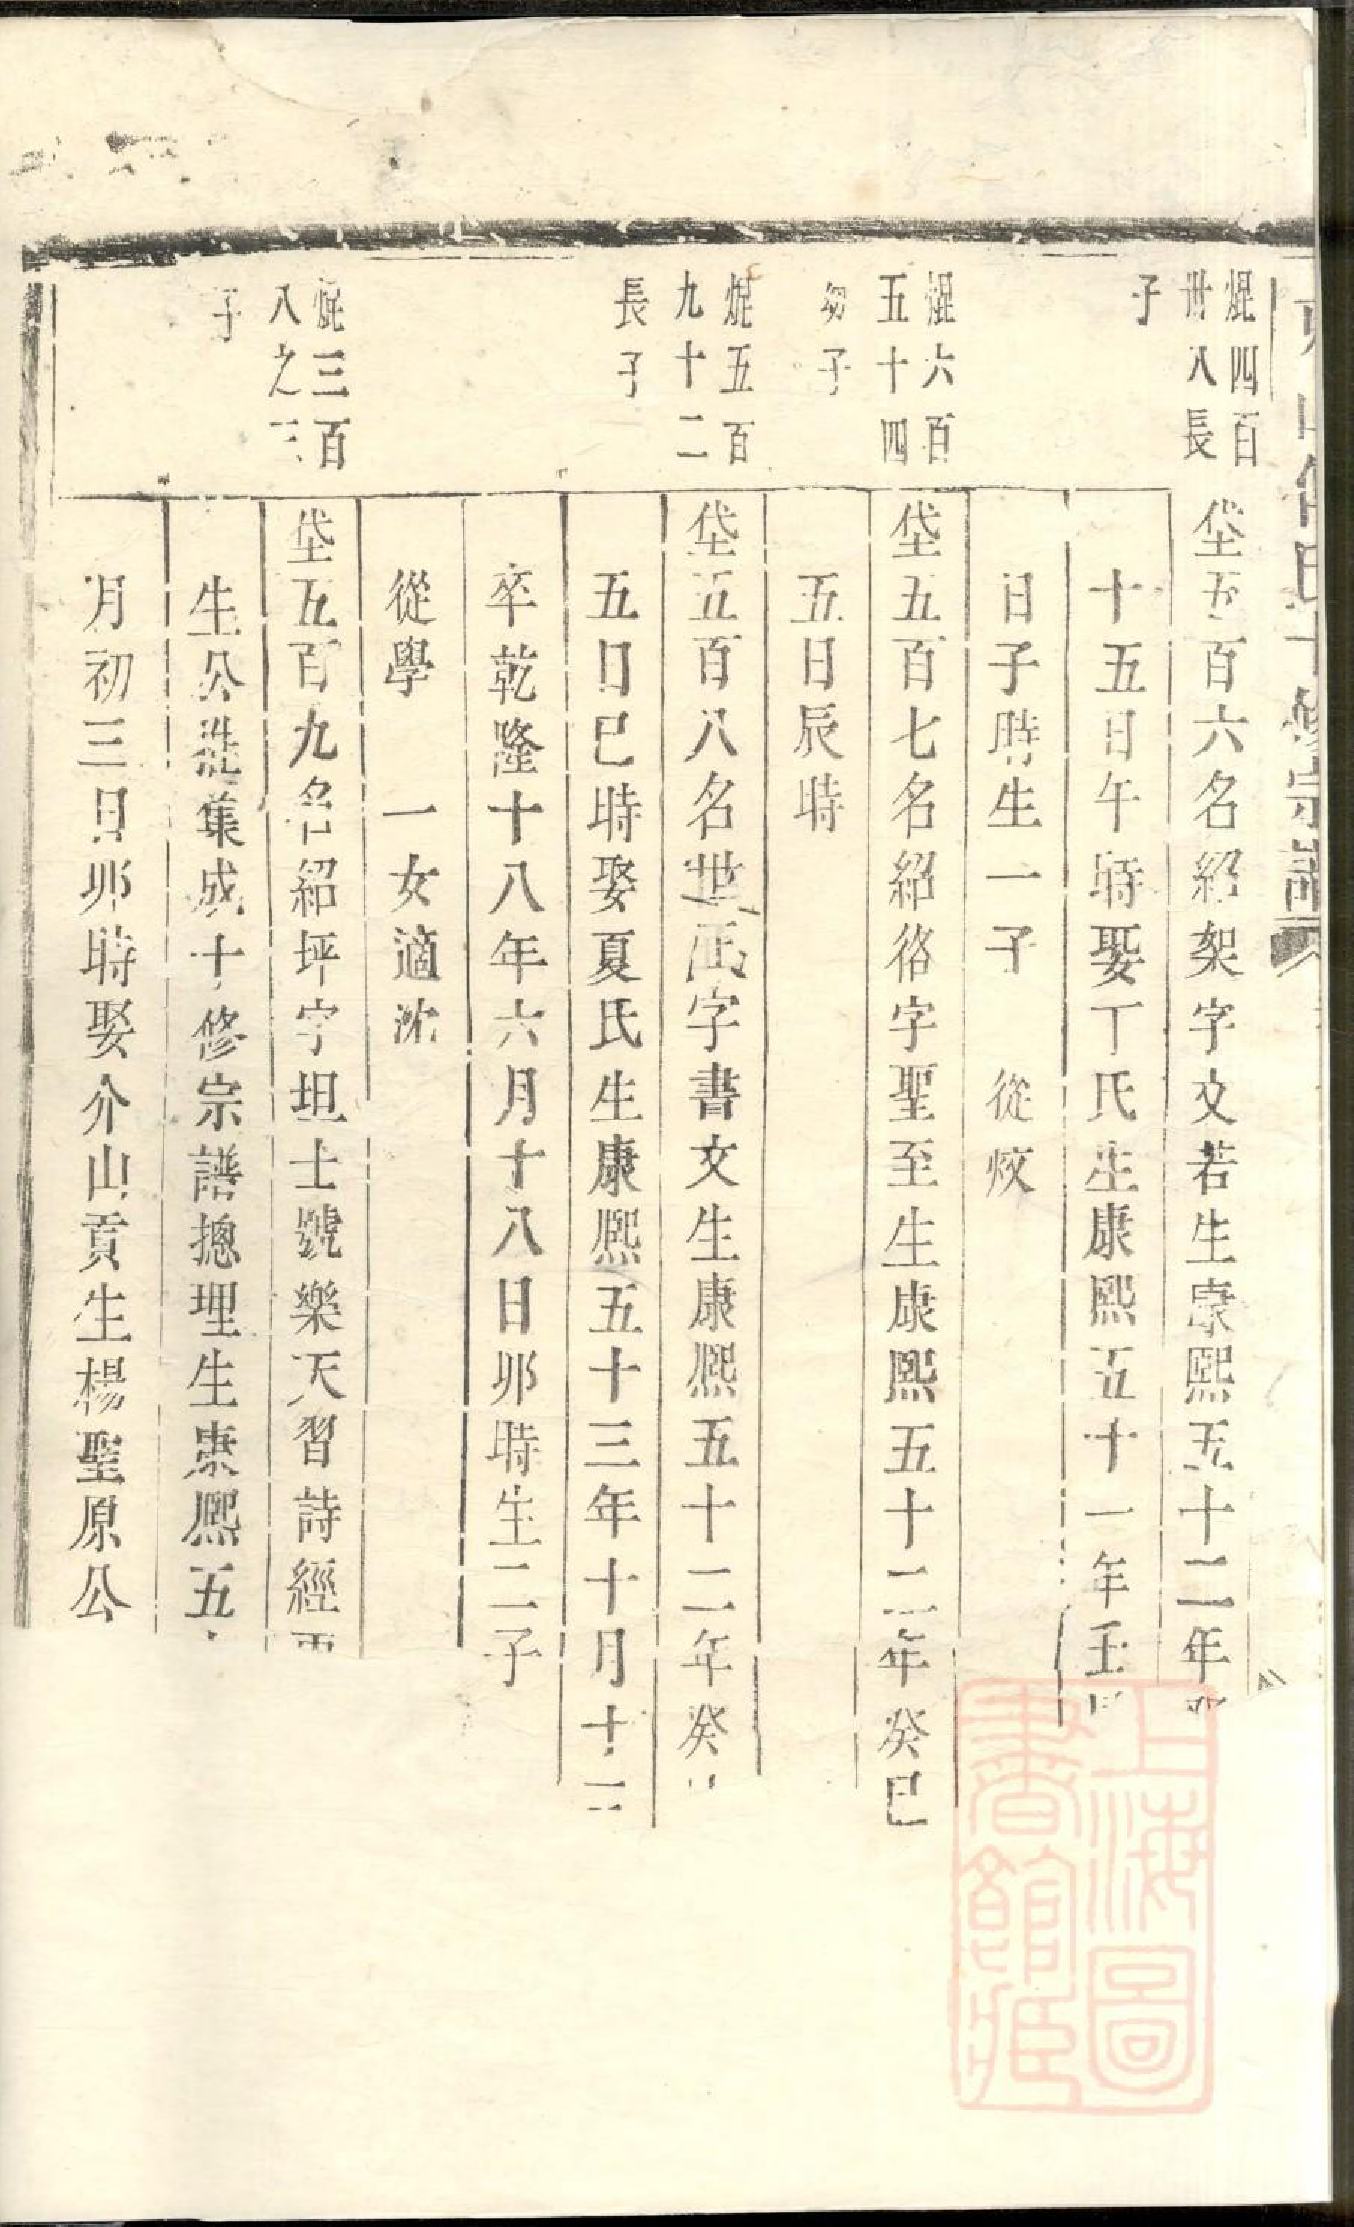 氏十修宗譜
焜四百
卅八長
子
垡五百六名紹架字文若生康熙五十二年
十五日午時娶丁氏生康熙五十一年壬
日子時生一子 從炆
焜六百
五十四
幼子
垡五百七名紹洛字聖至生康熙五十二年癸巳
五日辰時
焜五百
九十二
長子
垡五百八名世字書文生康熙五十二年癸
五日巳時娶夏氏生康熙五十三年十月十二
卒乾隆十八年六月十八日卯時生二子
從學 一女適沈
焜三百
八之三
子
垡五百九名紹坪字坦士號樂天習詩經
生公集成十修宗譜摠理生康熙五
月初三日卯時娶介山貢生楊聖原公
上海圖
書館藏